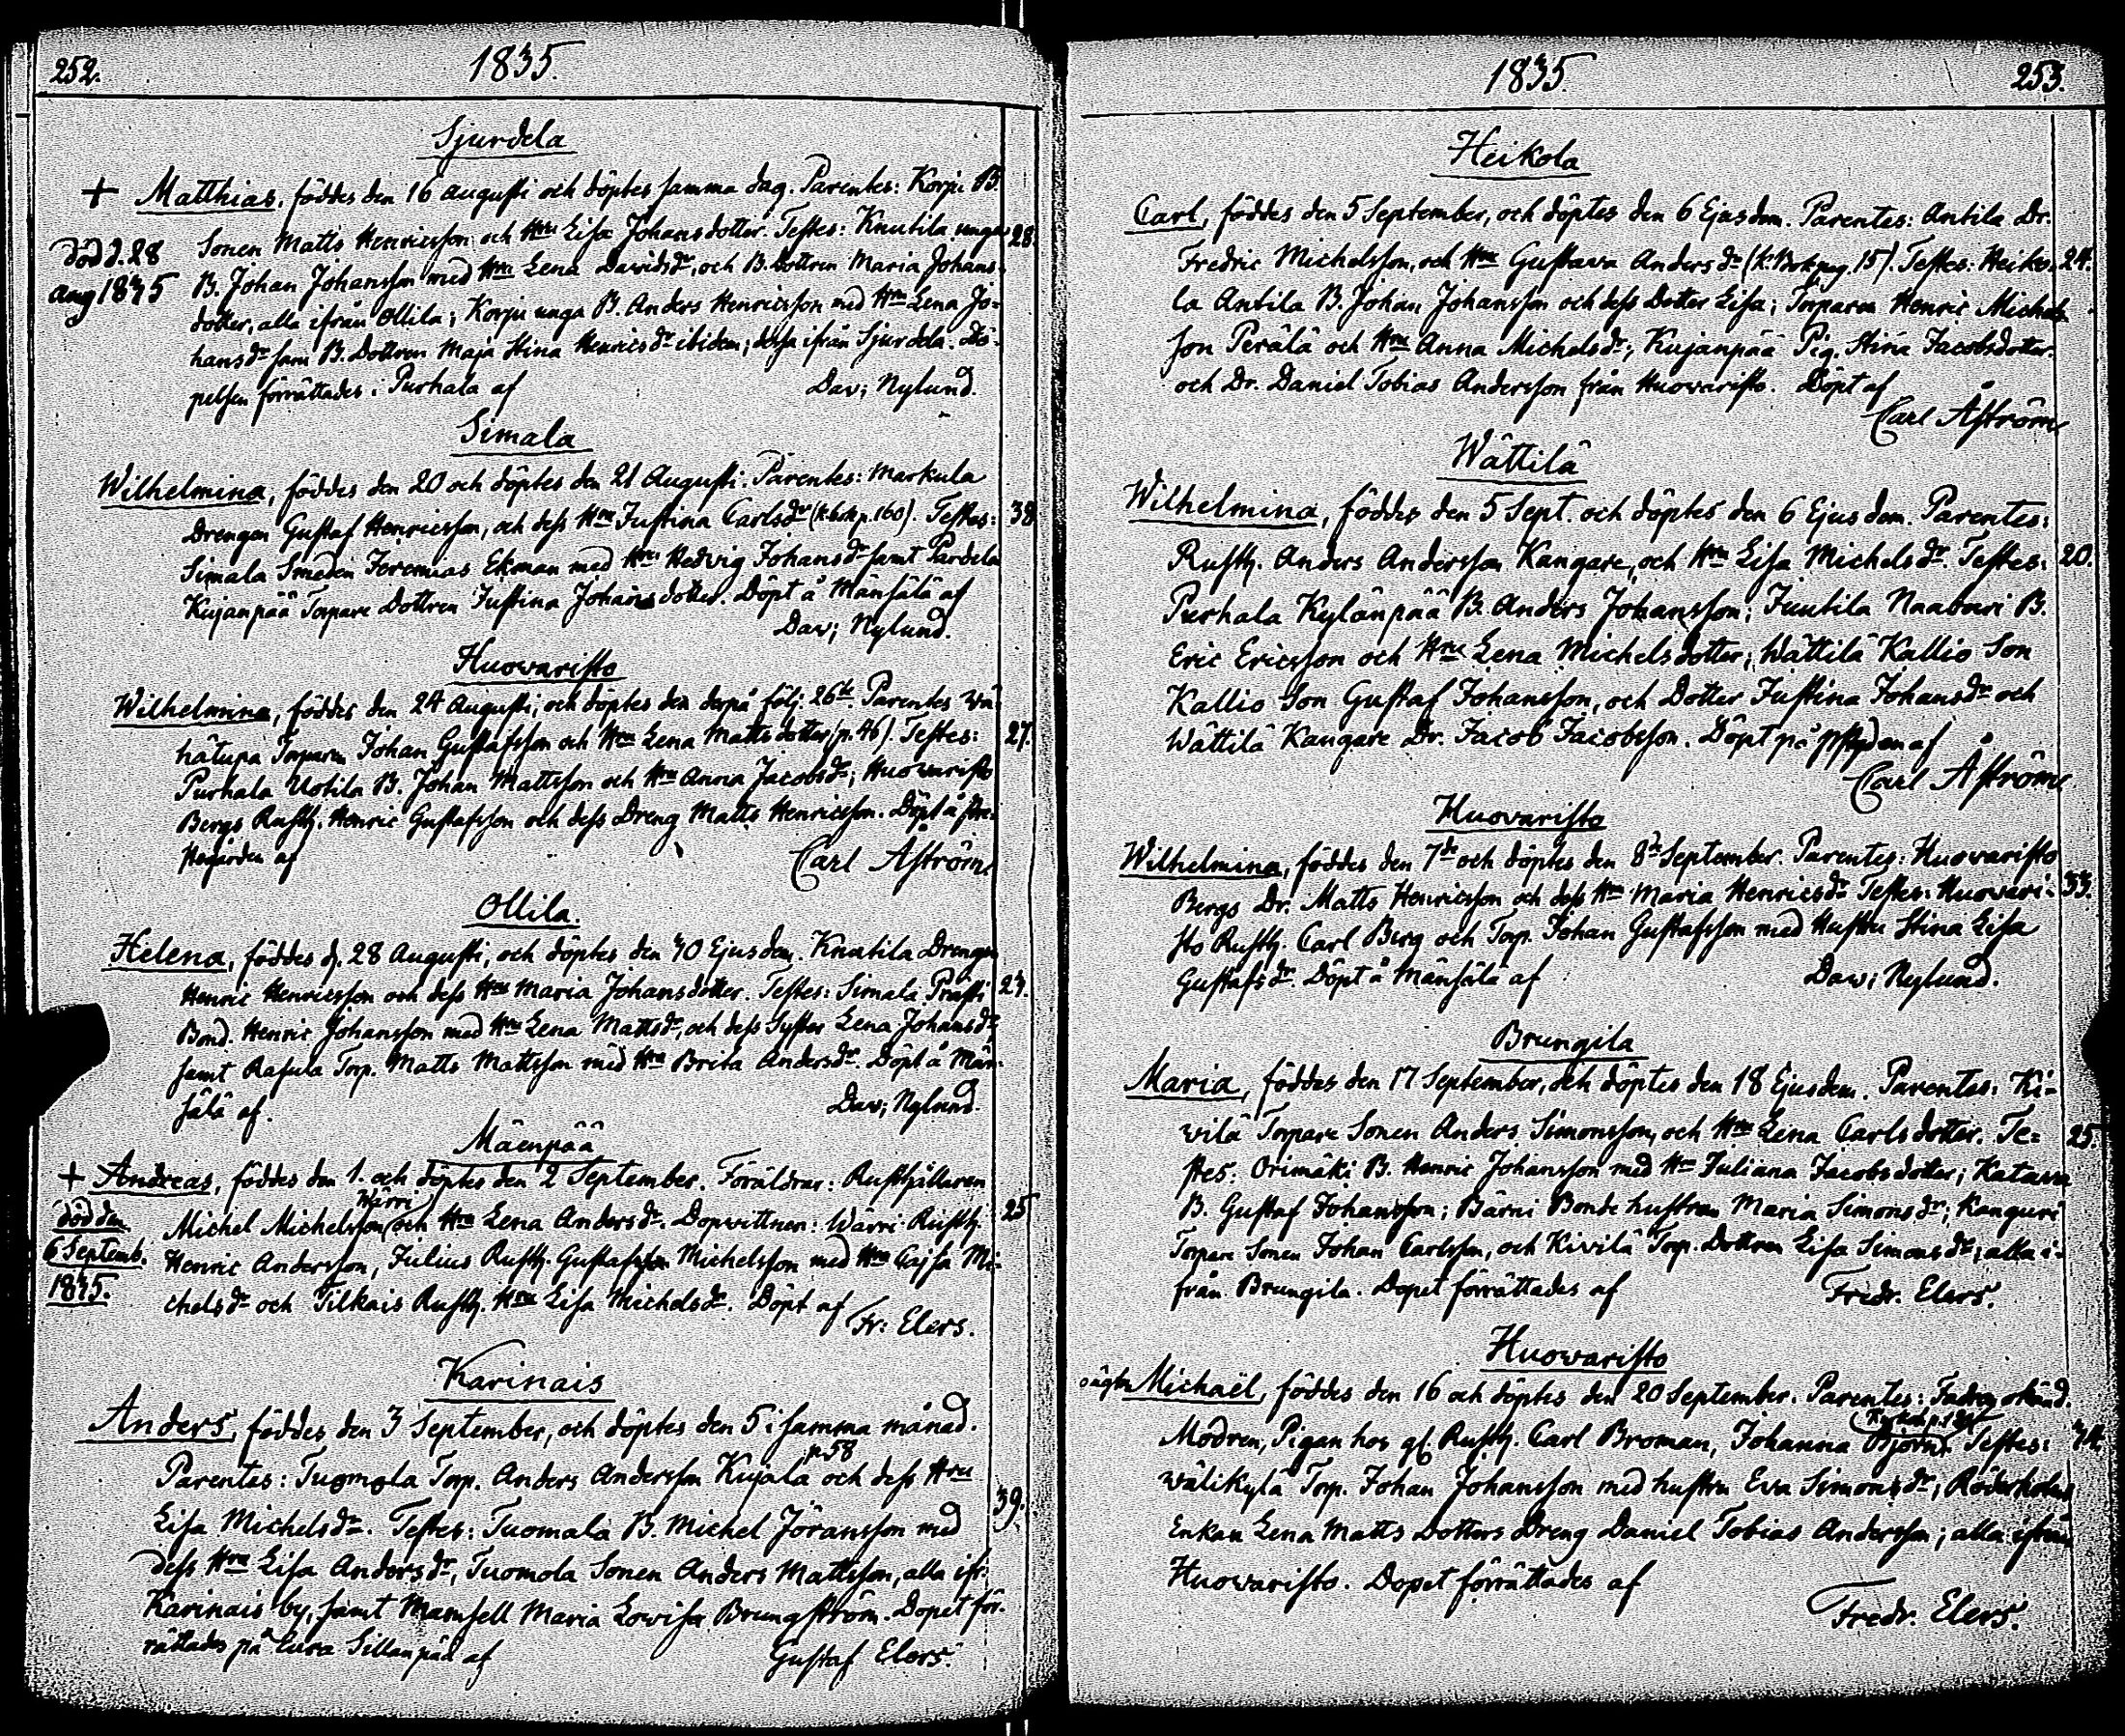 252.
1835.
Sjurdela
+ Matthias, föddes den 16 augusti och döptes samma dag. Parentes: Korpi B.
Sonen Matts Henricsson och Hru Lisa Johansdotter. Testes: Knutila unga 28.
död d. 28
B. Johan Johansson med Hru Lena Davidsdr, och B. Dottren Maria Johans-
aug 1835
dotter, alla ifrån Ollila; Korpi unga B. Anders Henricsson med Hru Lena Jo-
hansdr samt B. Dottren Maja Stina Henricsdr ibidem; dessa ifrån Sjurdela. Dö-
pelsen förrättades i Purhala af Dav; Nylund.
Simala
Wilhelmina, föddes den 20 och döptes den 21 Augusti. Parentes: Markula
Drengen Gustaf Henricsson, och dess Hru Justina Carlsdr (k.bok p.160). Testes: 38
Simala Smeden Jeremias Ekman med Hru Hedvig Johansdr samt Pardela
Kujanpää Torpare Dottren Justina Johansdotter. Döpt å Mänsälä af
Dav; Nylund.
Huovaristo
Wilhelmina, föddes den 24 Augusti, och döptes den derpå följ. 26te. Parentes Wä-
hätupa Torparen Johan Gustafsson och Hru Lena Mattsdotter (p.46). Testes: 27.
Purhala Uotila B. Johan Mattsson och Hru Anna Jacobsdr; Huovaristo
Bergs Rusth. Henric Gustafsson och dess Dreng Matts Henricsson. Döpt å Pre-
stegården af Carl Åström
Ollila.
Helena, föddes d. 28 Augusti, och döptes den 30 Ejusdem. Knutila Drengen
Henric Henricsson och dess Hru Maria Johansdotter. Testes: Simala Prästi 23.
Bond. Henric Johansson med Hru Lena Mattsdr, och dess Syster Lena Johansdr
samt Rasula Torp. Matts Mattsson med Hru Brita Andersdr. Döpt å Män-
sälä af. Dav; Nylund.
Mäenpää
+ Andreas, föddes den 1. och döptes den 2 September. Föräldrar: Rusthållaren
Wärri
Michel Michelsson och Hru Lena Andersdr. Dopvittnen: Wärri Rusth. 25
död den
6 Septemb.
1835.
Henric Andersson, Julius Rusth. Gustafsson Michelsson med Hru Cajsa Mi-
chelsdr och Tilkais Rusth. Hru Lisa Michelsdr. Döpt af
Fr: Elers.
Karinais
Anders, föddes den 3 September, och döptes den 5 i samma månad.
p.58
Parentes: Tuomola Torp. Anders Andersson Kujala och dess Hru
Lisa Michelsdr. Testes: Tuomala B. Michel Jöransson med 39.
dess Hru Lisa Andersdr, Tuomola Sonen Anders Mattsson, alla ifr.
Karinais by, samt Mamsell Maria Lovisa Brungström. Dopet för-
rättades på Eura Sillanpää af Gustaf Elers.
1835.
253.
Heikola
Carl, föddes den 5 September, och döptes den 6 Ejusdem. Parentes: Antila Dr.
Fredric Michelsson, och Hru Gustava Andersdr (k.Bok pag. 15). Testes: Heiko- 24.
la Antila B. Johan Johansson och dess Dotter Lisa; Torparen Henric Michels-
son Perälä och Hru Anna Michelsdr; Kujanpää Pig. Stina Jacobsdotter
och Dr. Daniel Tobias Andersson från Huovaristo. Döpt af
Carl Åström
Wättilä
Wilhelmina, föddes den 5 Sept. och döptes den 6 Ejusdem. Parentes:
Rusth. Anders Andersson Kangare, och Hru Lisa Michelsdr. Testes: 20.
Purhala Kylänpää B. Anders Johansson; Juutila Naaburi B.
Eric Ericsson och Hru Lena Michelsdotter; Wättilä Kallio Son
Kallio Son Gustaf Johansson, och Dotter Justina Johansdr och
Wättilä Kangare Dr. Jacob Jacobsson. Döpt på af
Carl Åström
Huovaristo
Wilhelmina, föddes den 7de och döptes den 8de September. Parentes: Huovaristo
Bergs Dr. Matts Henricsson och dess Hru Maria Henricsdr Testes: Huovari- 33.
sto Rusth. Carl Berg och Torp. Johan Gustafsson med Hustru Stina Lisa
Gustafsdr. Döpt å Mänsälä af Dav; Nylund.
Brungila
Maria, föddes den 17 September, och döptes den 18 Ejusdem. Parentes: Ki-
vilä Torpare Sonen Anders Simonsson, och Hru Lena Carlsdotter. Te- 25
stes: Orimäki B. Henric Johansson med Hru Juliana Jacobsdotter; Katava
B. Gustaf Johansson; Bärni Bonde hustrun Maria Simonsdr; Kanguri
Torpare Sonen Johan Carlsson, och Kivilä Torp. Dottren Lisa Simonsdr; alla i-
från Brungila. Dopet förrättades af Fredr. Elers.
Huovaristo
oägta Michaël, föddes den 16 och döptes den 20 September. Parentes: Fadren okänd.
Modren, Pigan hos gl. Rusth. Carl Broman, Johanna Björn. Testes:
Wälikylä Torp. Johan Johansson med hustru Eva Simonsdr; Röderholms
Enkan Lena Matts Dotters Dreng Daniel Tobias Andersson; alla ifrån
Huovaristo. Dopet förrättades af
Fredr. Elers.